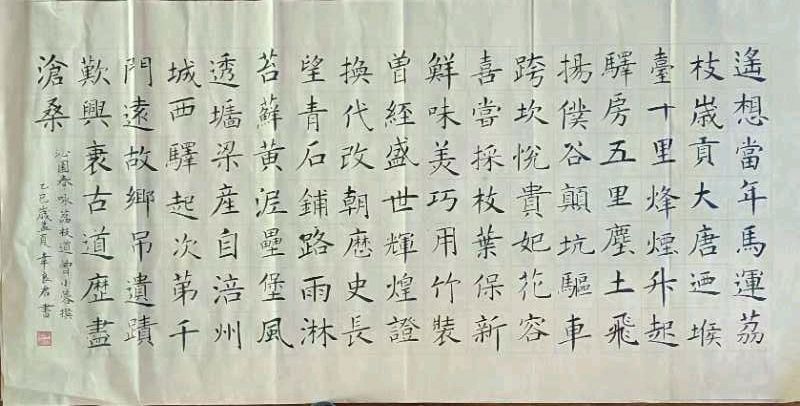 遙想當年馬運荔
枝歲貢大唐迺堠
臺十里烽煙升起
驛房五里塵土飛
揚僕谷顛坑驅車
跨坎悅貴妃花容
喜嘗採枝葉保新
鮮味美巧用竹裝
曾經盛世輝煌證
換代改朝歷史長
望青石鋪路雨淋
苔蘚黃泥壘堡風
透墻梁產自涪州
城西驛起次第千
門遠故鄉吊遺蹟
歎興衰古道歷盡
滄桑
沁園春咏荔枝道曾小蓉撰
乙巳歲孟夏韋良君書